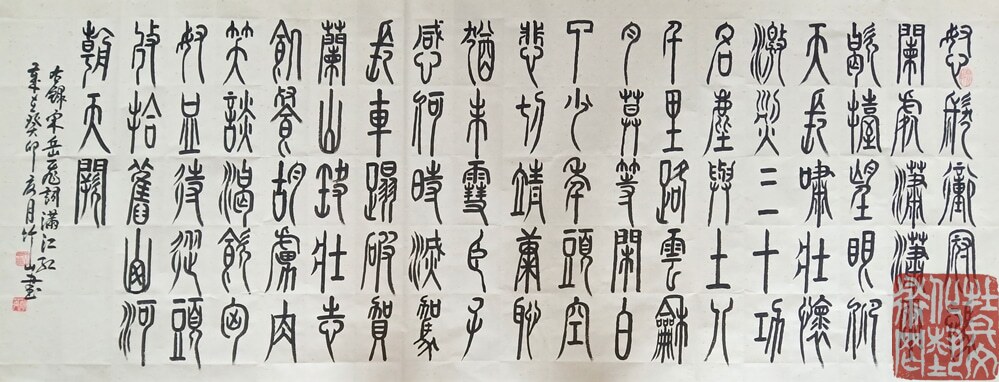 怒髮衝冠
闌處瀟瀟
歇擡望眼仰
天長嘯壯懷
激烈三十功
名塵與土八
千里路雲龢
月莫等閒白
了少年頭空
悲切靖康恥
猶未雪臣子
感何時滅駕
長車蹋破賀
蘭山缺壯志
飢餐胡虜肉
笑談渴飲匈
奴血待從頭
收拾舊山河
朝天闕
右錄宋岳飛詞滿江紅
癸卯夏月竹山書